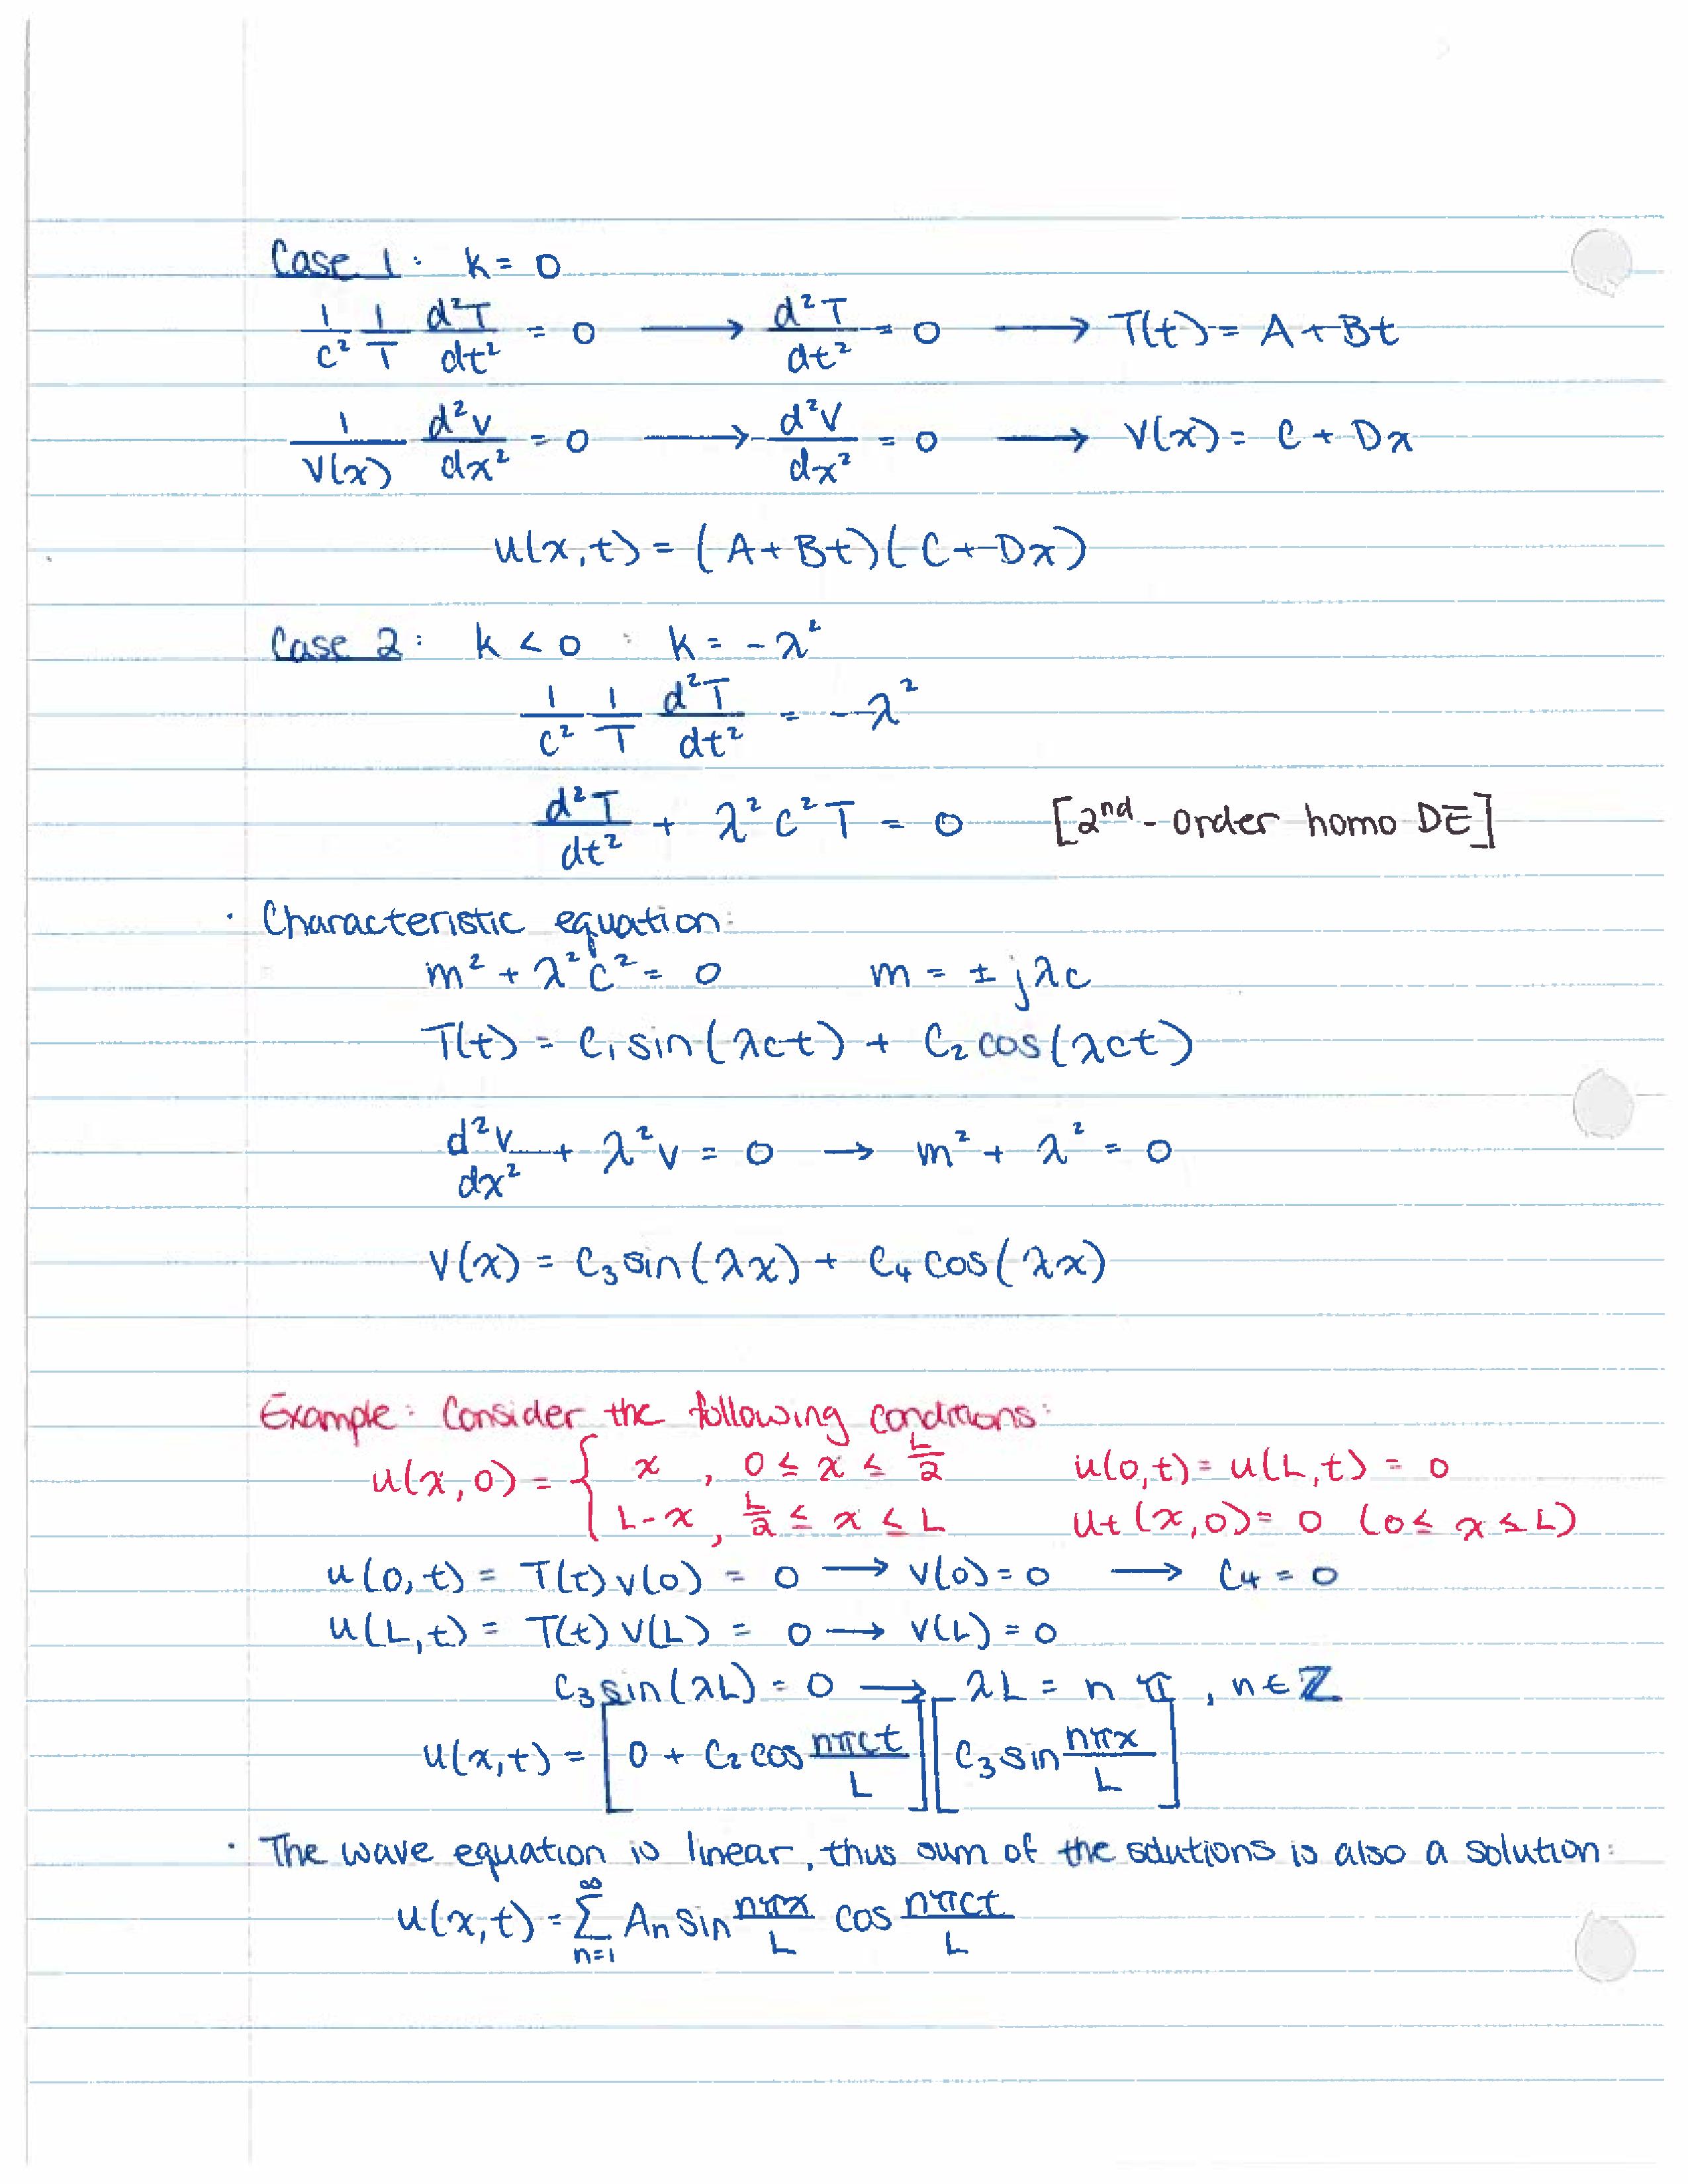 Case 1: k = 0
1/c² 1/T d²T/dt² = 0 → d²T/dt² = 0 → T(t) = A + Bt
1/V(x) d²V/dx² = 0 → d²V/dx² = 0 → V(x) = C + Dx
u(x,t) = (A + Bt)(C + Dx)
Case 2: k < 0 : k = -λ²
1/c² 1/T d²T/dt² = -λ²
d²T/dt² + λ²c²T = 0 [2nd-order homo DE]
· Characteristic equation:
m² + λ²c² = 0 m = ± jλc
T(t) = C₁sin(λct) + C₂cos(λct)
d²V/dx² + λ²V = 0 → m² + λ² = 0
V(x) = C₃sin(λx) + C₄cos(λx)
Example: Consider the following conditions:
u(x,0) = { x , 0 ≤ x ≤ L/2 u(0,t) = u(L,t) = 0
L-x, L/2 ≤ x ≤ L ut(x,0) = 0 (0 ≤ x ≤ L)
u(0,t) = T(t)V(0) = 0 → V(0) = 0 → C₄ = 0
u(L,t) = T(t)V(L) = 0 → V(L) = 0
C₃sin(λL) = 0 → λL = nπ, n ∈ ℤ
u(x,t) = [0 + C₂cos nπct/L][C₃sin nπx/L]
· The wave equation is linear, thus sum of the solutions is also a solution:
u(x,t) = ∑ₙ₌₁^∞ Aₙ sin nπx/L cos nπct/L